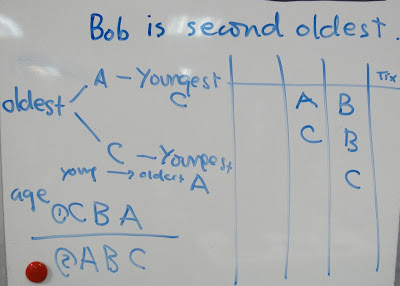 Bob is second oldest.
A – Youngest
C
oldest
C – Youngest
young → oldest A
age
① C B A
② A B C
Tix
A B
C B
C